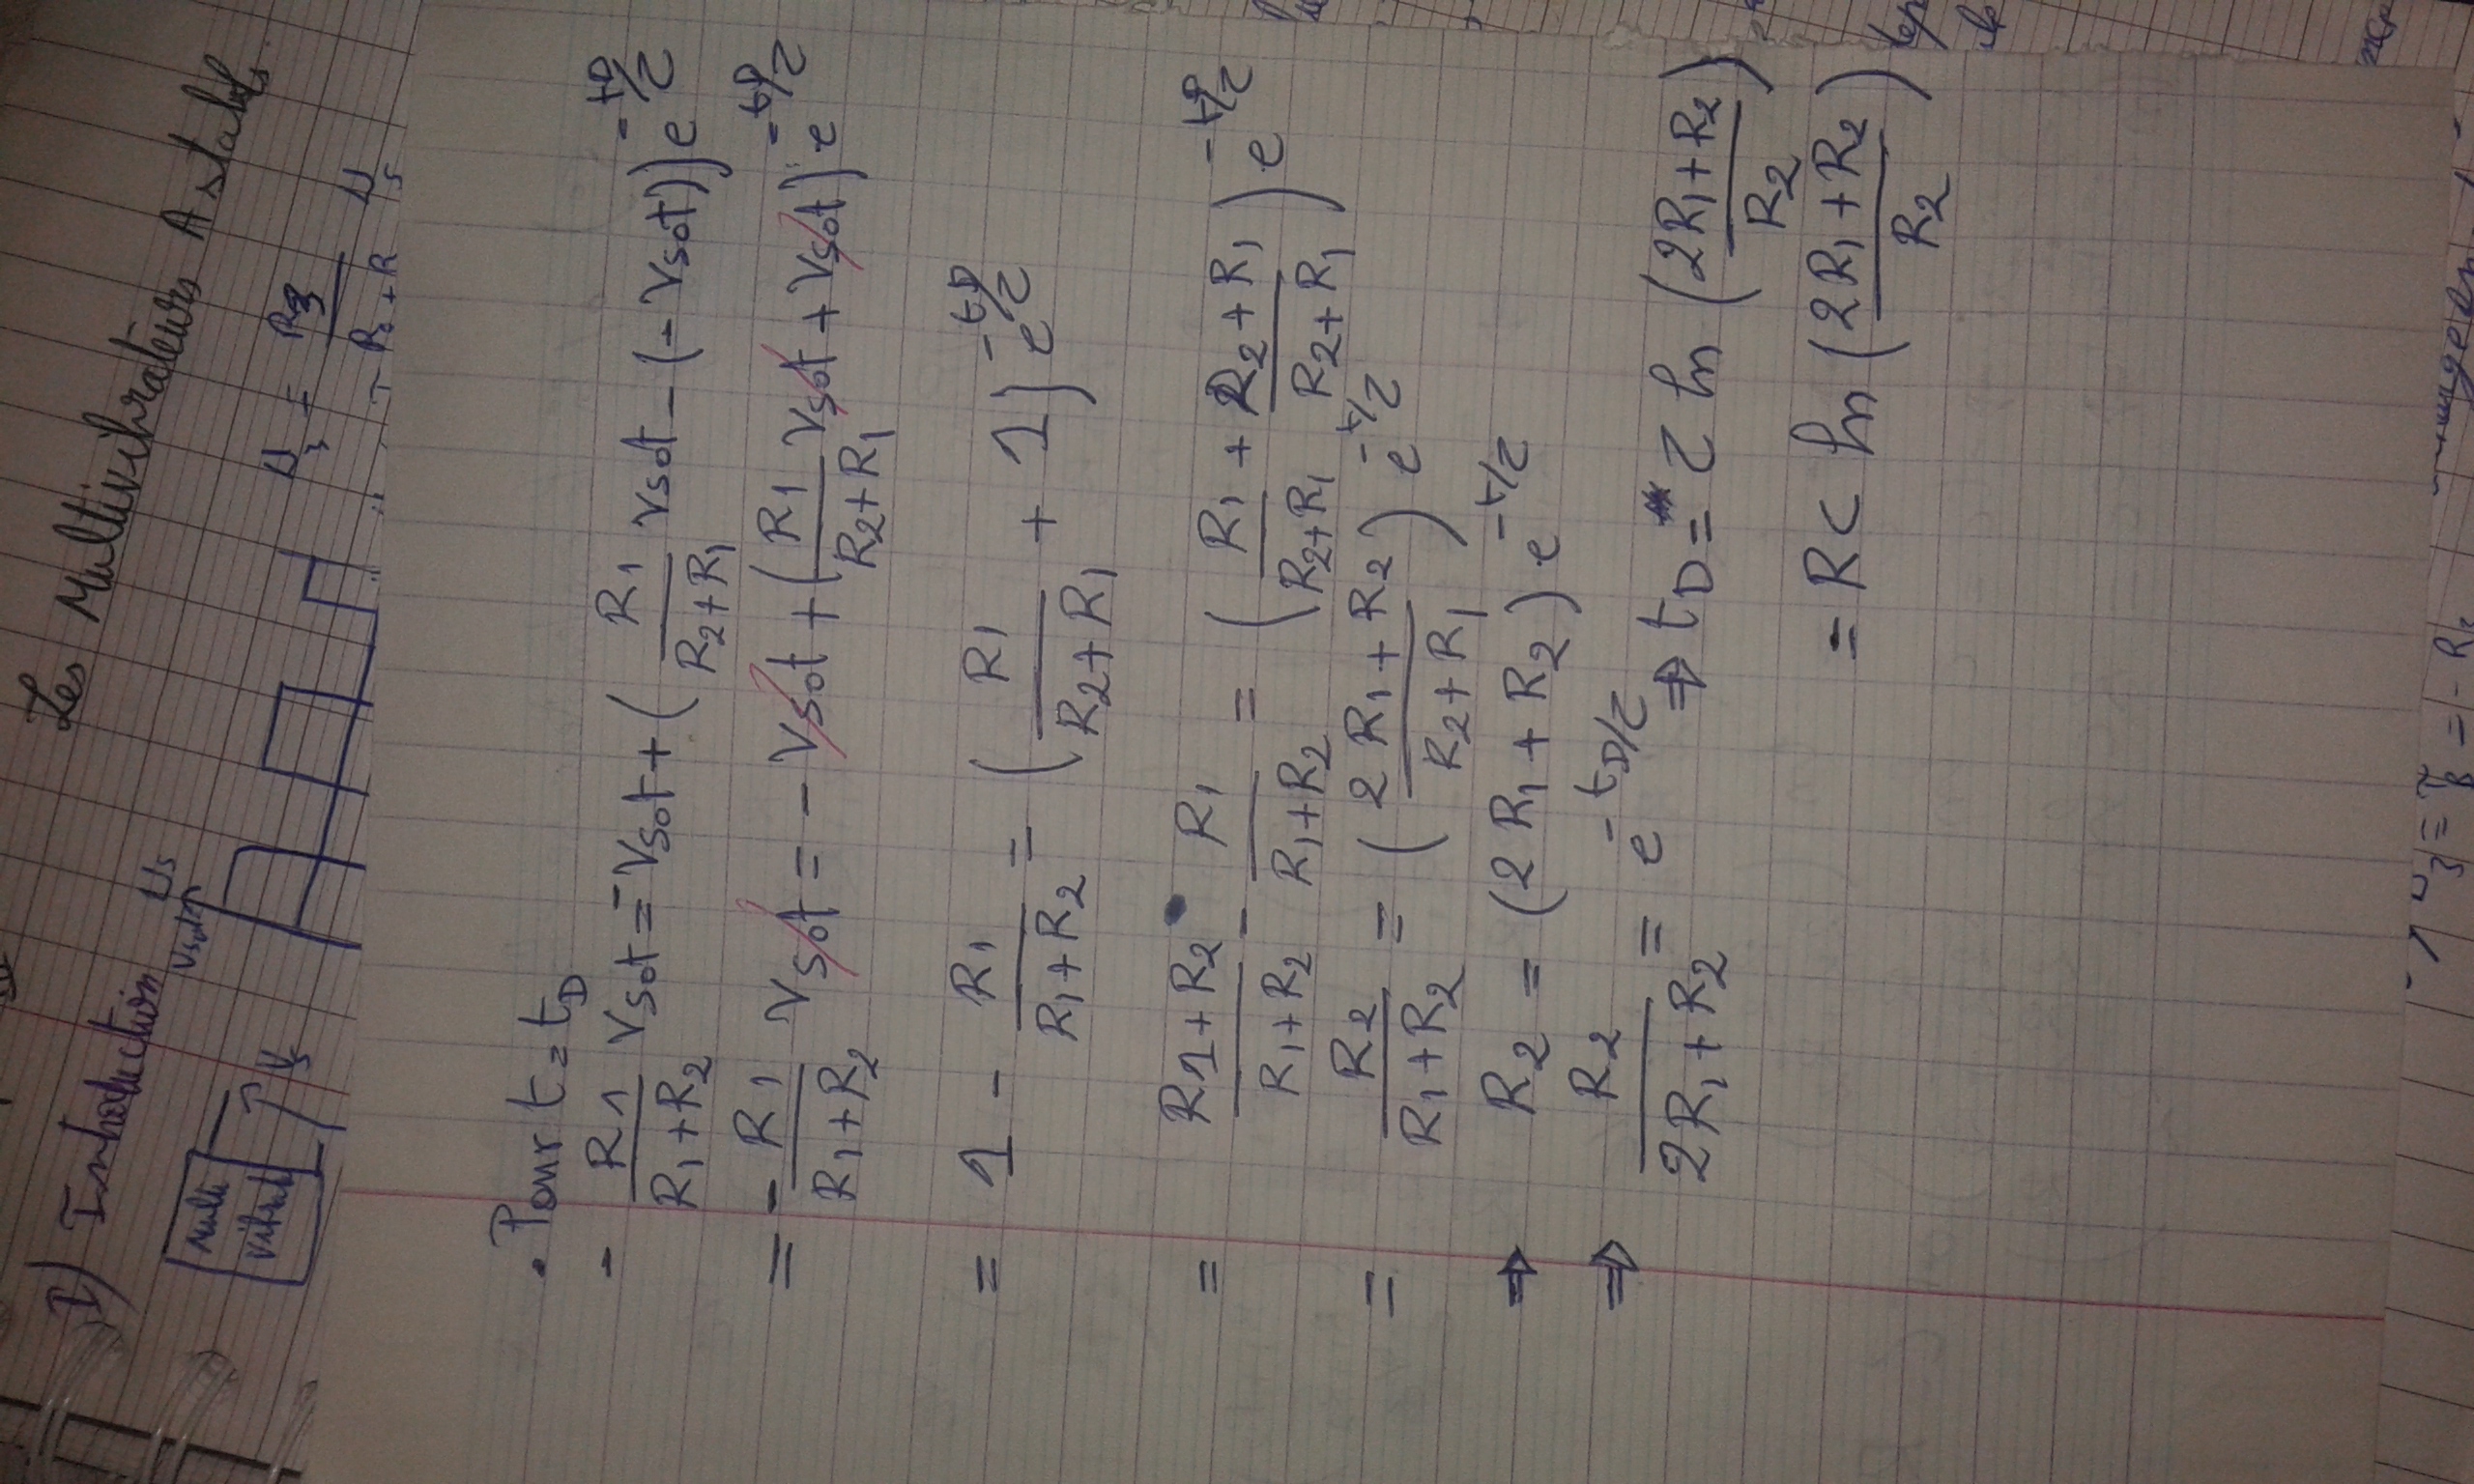 Les Multivibrateurs Astabls
I) Introduction
Multi
vibrat
Vs
Vsat
Us
U3 = R3 / R2 + R Us
• Pour t = tD
- R1/(R1+R2) Vsat = -Vsat + (R1/(R2+R1) Vsat - (-Vsat)) e^(-tD/τ)
= - R1/(R1+R2) Vsat = - Vsat + (R1/(R2+R1) Vsat + Vsat) e^(-tD/τ)
= 1 - R1/(R1+R2) = (R1/(R2+R1) + 1) e^(-tD/τ)
= (R1+R2)/(R1+R2) - R1/(R1+R2) = (R1/(R2+R1) + (R2+R1)/(R2+R1)) e^(-tD/τ)
= R2/(R1+R2) = ((2R1+R2)/(R2+R1)) e^(-t/τ)
⇒ R2 = (2R1+R2) e^(-t/τ)
⇒ R2/(2R1+R2) = e^(-tD/τ) ⇒ tD = τ ln ((2R1+R2)/R2)
= RC ln ((2R1+R2)/R2)